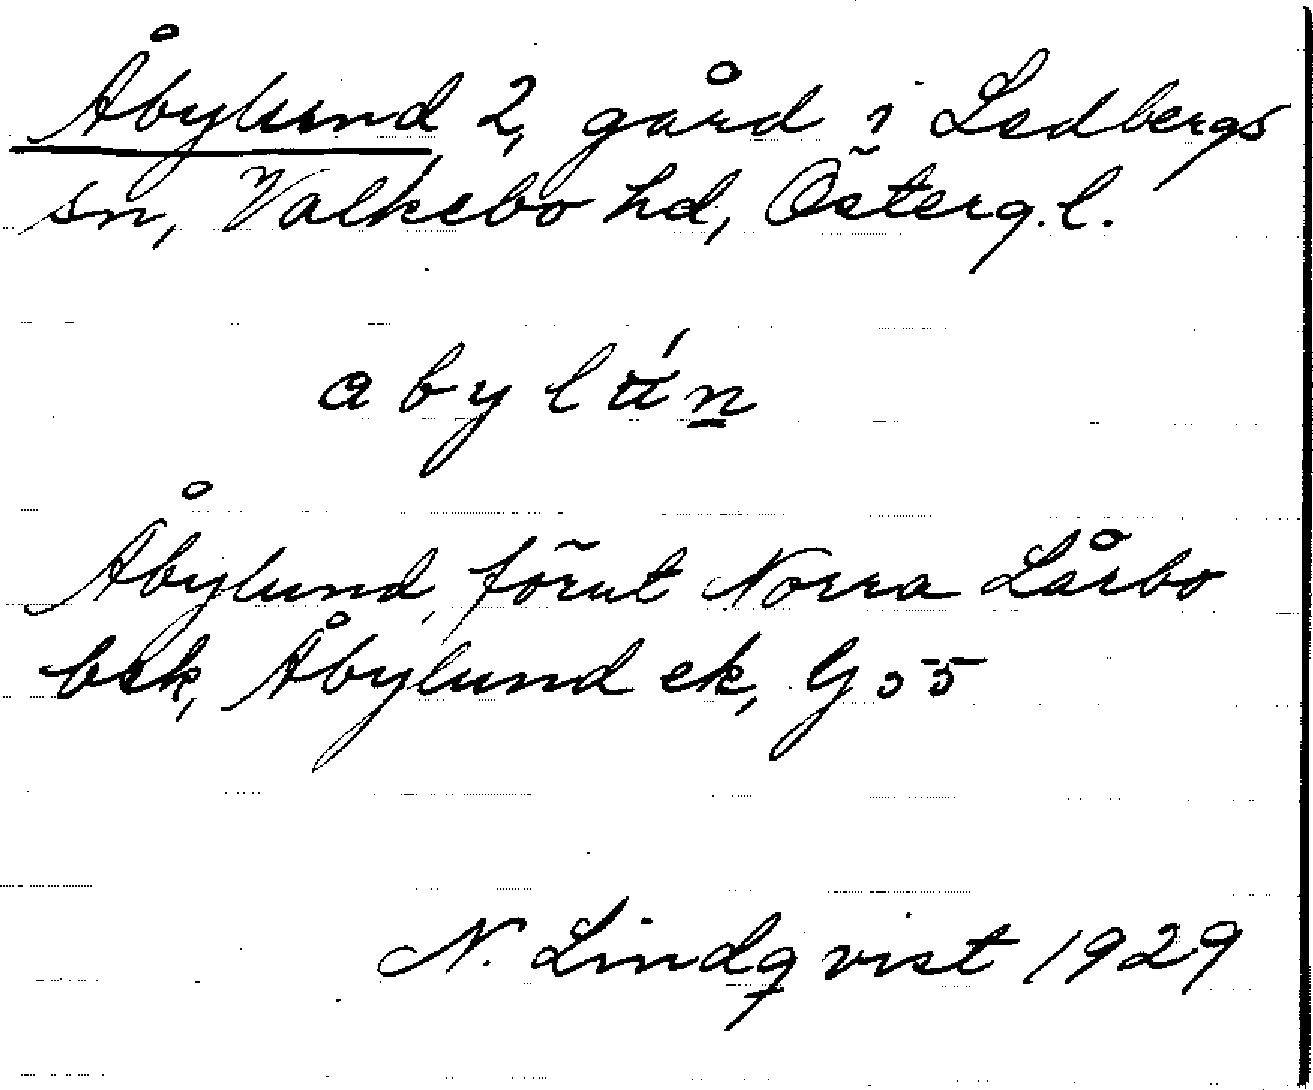 Åbylund 2, gård i Ledbergs
sn, Valkebo hd, Österg. l.
abylún
Åbylund, förut Norra Lårbo
bek, Åbylund ek, G 55
N. Lindqvist 1929